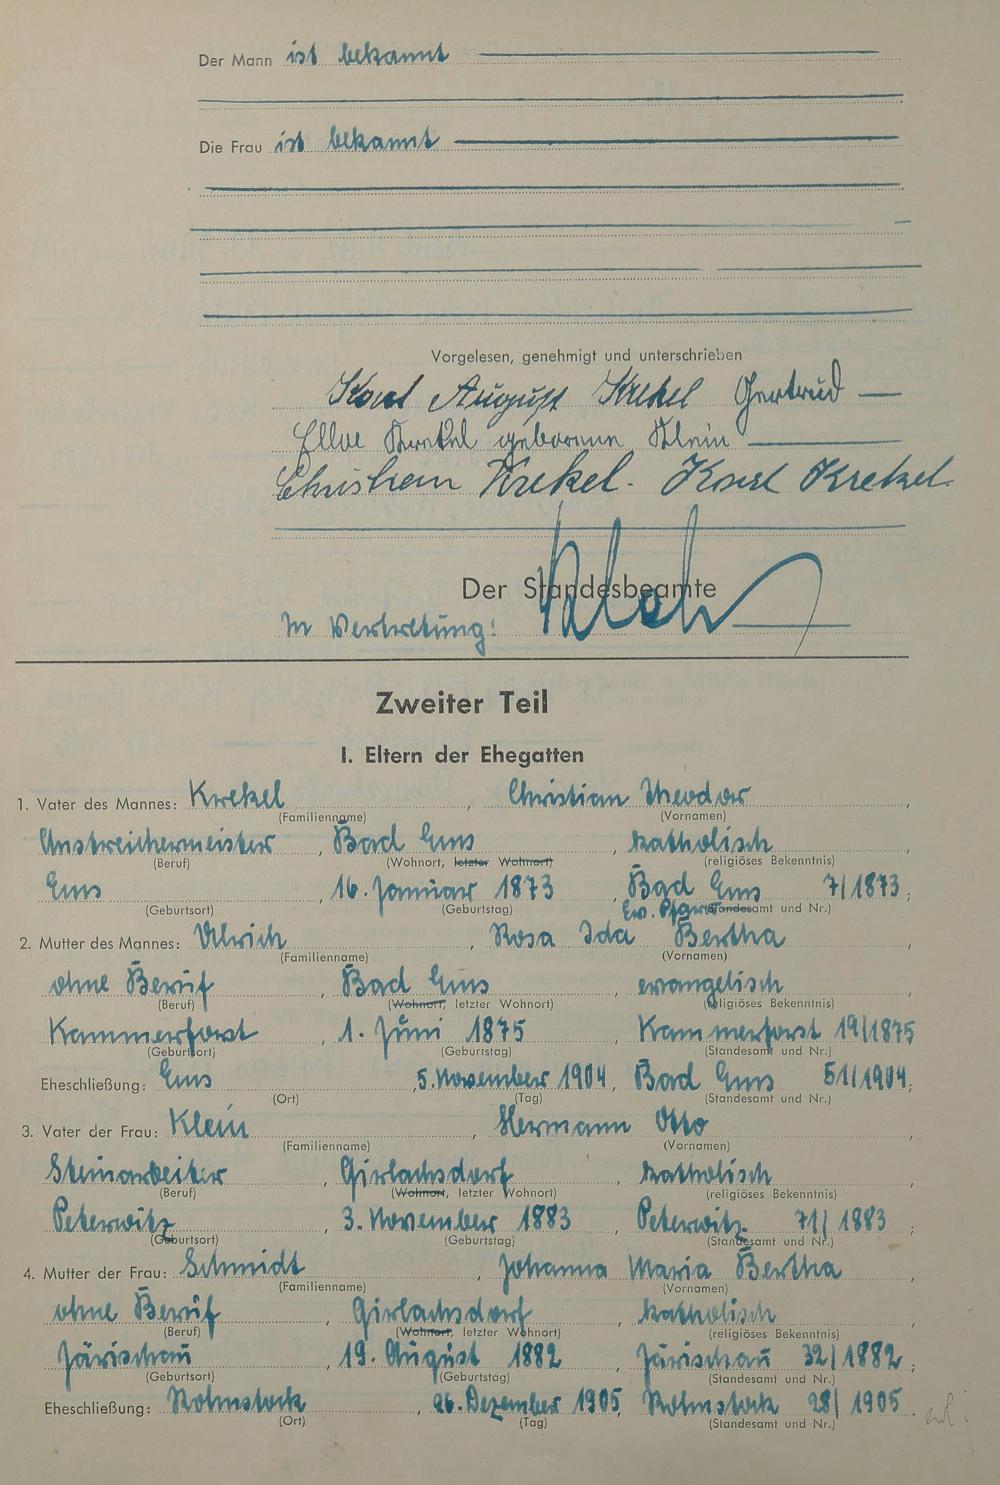 Der Mann ist bekannt
Die Frau ist bekannt
Vorgelesen, genehmigt und unterschrieben
Karl August Krekel Gertrud
Ella Krekel geborene Klein
Christian Krekel. Karl Krekel.
Der Standesbeamte
In Vertretung:
Zweiter Teil
I. Eltern der Ehegatten
1. Vater des Mannes: Krekel, Christian Theodor,
(Familienname) (Vornamen)
Anstreichermeister, Bad Ems, katholisch
(Beruf) (Wohnort, letzter Wohnort) (religiöses Bekenntnis)
Ems, 16. Januar 1873, Bad Ems 7/1873;
(Geburtsort) (Geburtstag) Ev. Pfarr (Standesamt und Nr.)
2. Mutter des Mannes: Ulrich, Rosa Ida Bertha,
(Familienname) (Vornamen)
ohne Beruf, Bad Ems, evangelisch,
(Beruf) (Wohnort, letzter Wohnort) (religiöses Bekenntnis)
Kammerforst, 1. Juni 1875, Kammerforst 19/1875
(Geburtsort) (Geburtstag) (Standesamt und Nr.)
Eheschließung: Ems, 5. November 1904, Bad Ems 51/1904;
(Ort) (Tag) (Standesamt und Nr.)
3. Vater der Frau: Klein, Hermann Otto,
(Familienname) (Vornamen)
Steinarbeiter, Girlachsdorf, katholisch,
(Beruf) (Wohnort, letzter Wohnort) (religiöses Bekenntnis)
Peterwitz, 3. November 1883, Peterwitz 71/1883;
(Geburtsort) (Geburtstag) (Standesamt und Nr.)
4. Mutter der Frau: Schmidt, Johanna Maria Bertha,
(Familienname) (Vornamen)
ohne Beruf, Girlachsdorf, katholisch,
(Beruf) (Wohnort, letzter Wohnort) (religiöses Bekenntnis)
Järischau, 19. August 1882, Järischau 32/1882;
(Geburtsort) (Geburtstag) (Standesamt und Nr.)
Eheschließung: Rohnstock, 26. Dezember 1905, Rohnstock 28/1905.
(Ort) (Tag) (Standesamt und Nr.)